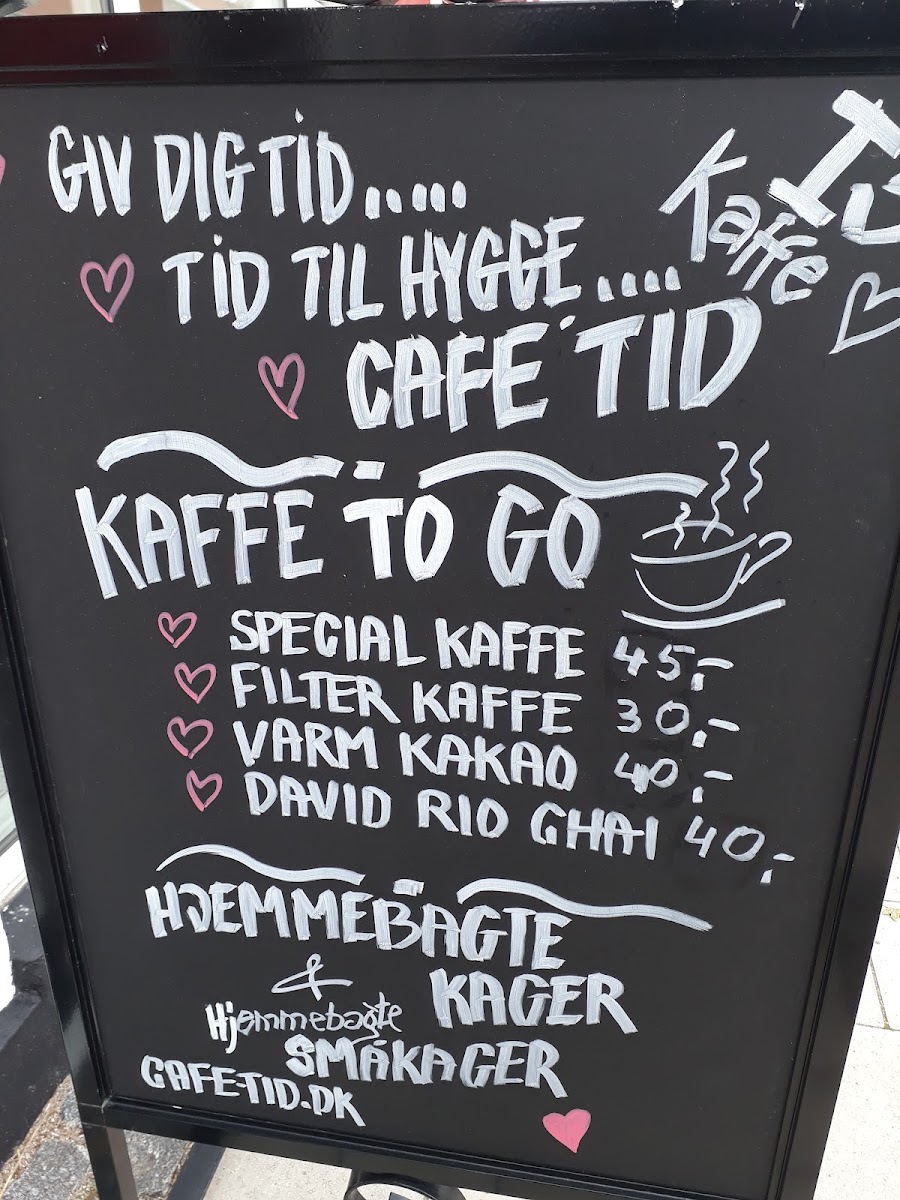 GIV DIG TID.....
TID TIL HYGGE....
CAFE TID
IS
Kaffe
KAFFE TO GO
SPECIAL KAFFE 45,-
FILTER KAFFE 30,-
VARM KAKAO 40,-
DAVID RIO CHAI 40,-
HJEMMEBAGTE
KAGER
&
Hjemmebagte
SMÅKAGER
CAFE-TID.DK